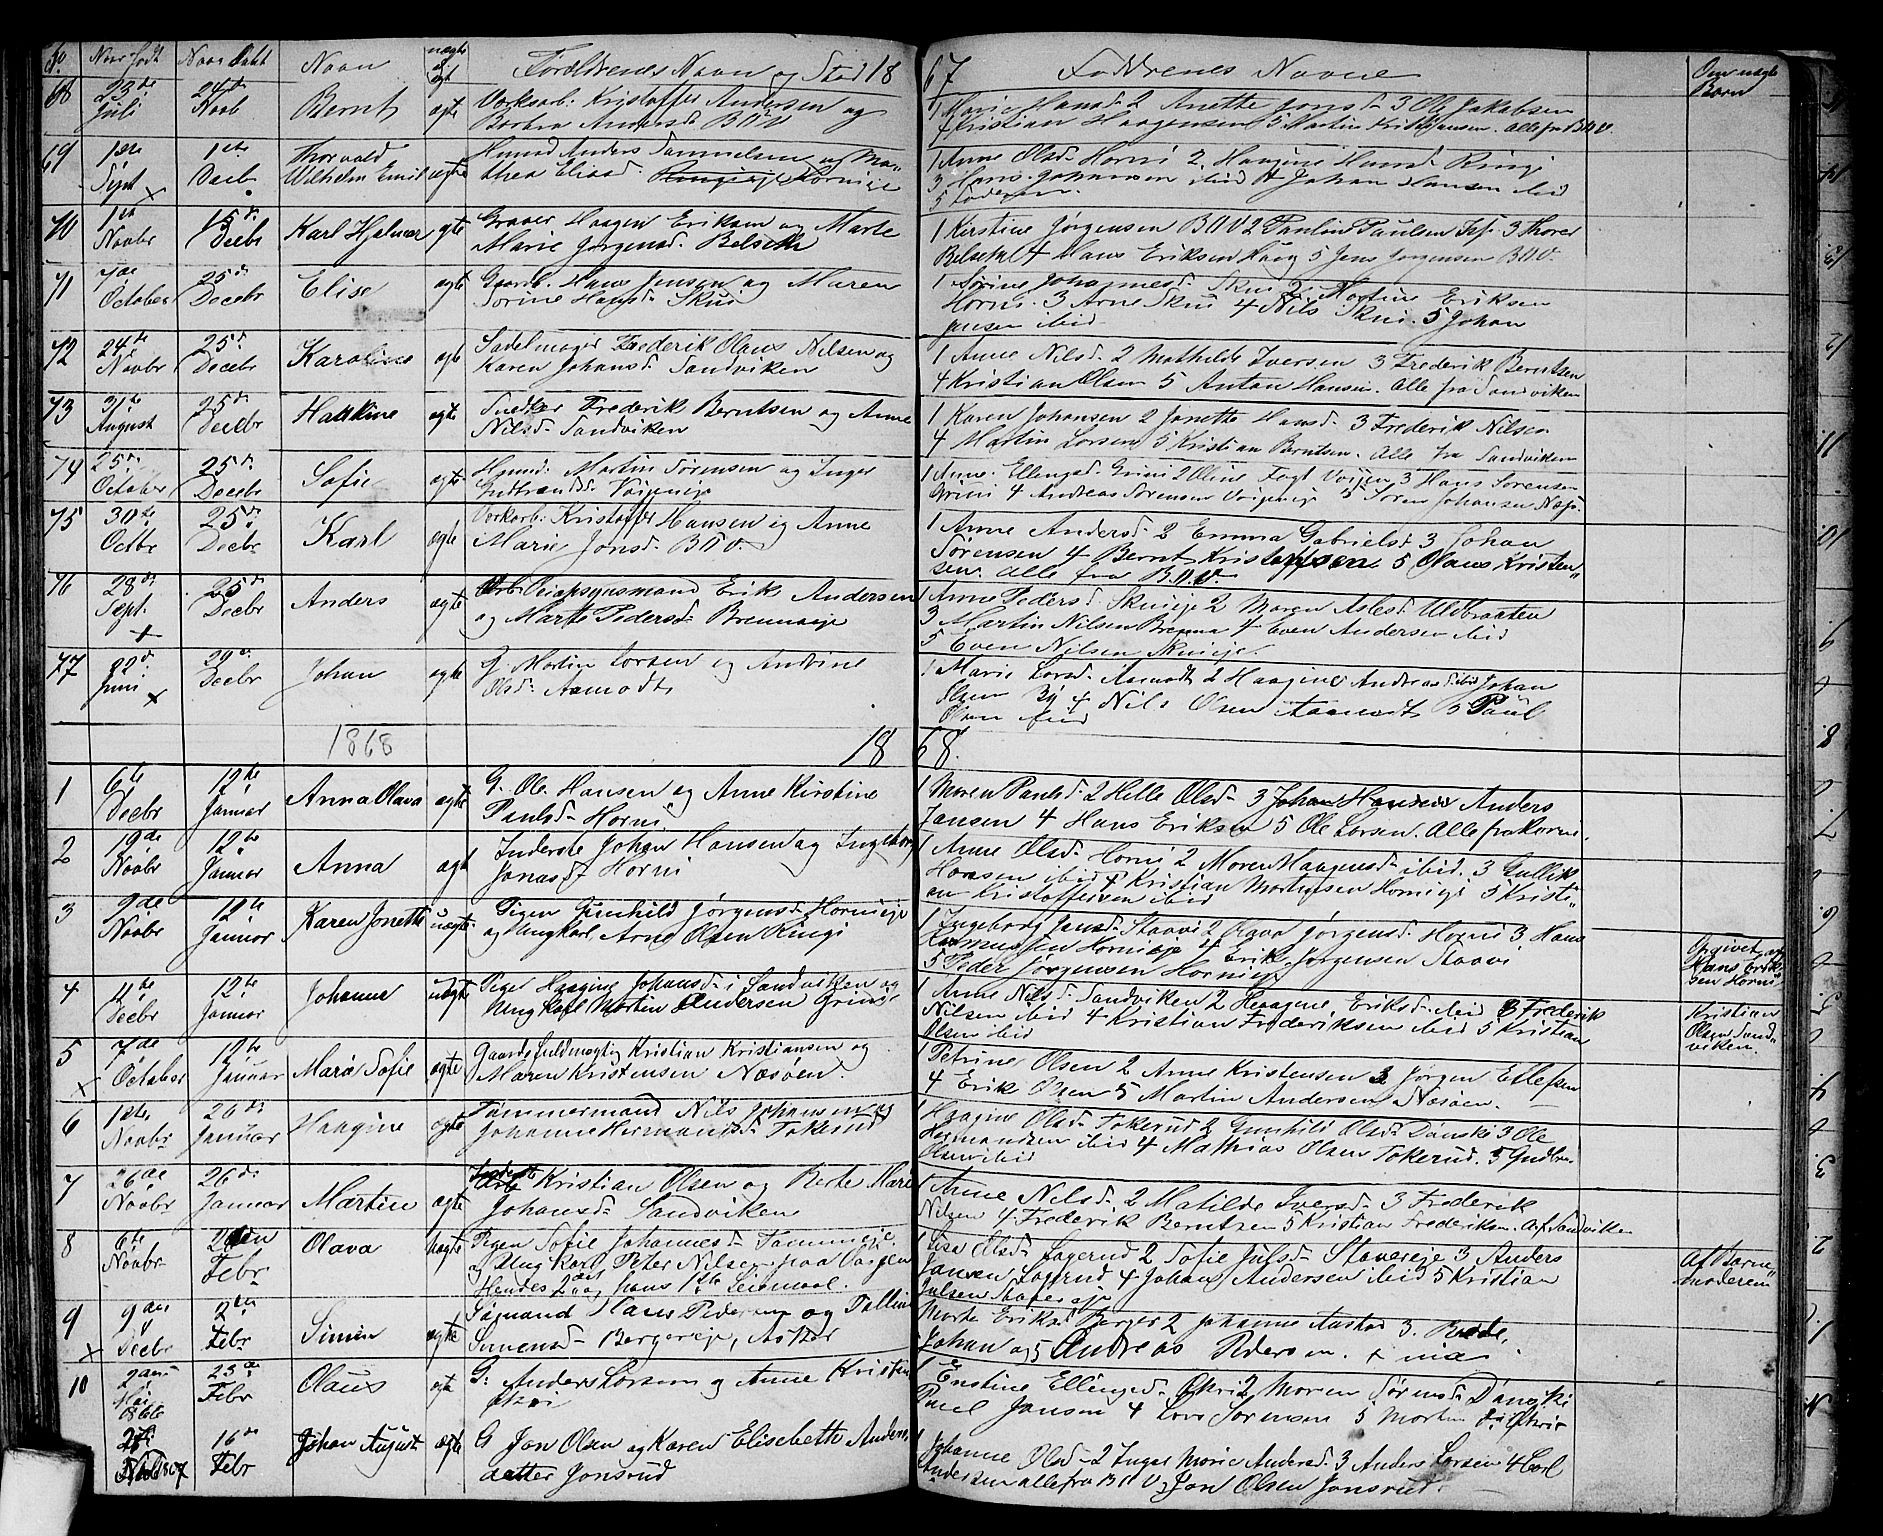 No. Naar født Naar Døbt Navn uægte el ægte Forældrenes Navn og Stad 18
67 Faddrenes Navne Om uægte Børn
68 23de Juli 24de Novb Bernt ægte Værksarb: Kristoffer Andersen og
Barbra Andersd BÜV
1 Marie Hansd 2 Anette Jonsd 3 Ole Jakobsen
4 Kristian Haagensen 5 Martin Kristiansen. Alle fra BÜV.
69 1ste Sept 1ste Decb Thorvald Wilhelm Emil uægte Husmd Anders Samuelsen og Ma-
thea Eliasd. Hornieje
1 Anne Olsd Horni 2 Haagine Hansd Ringi
3 Hans Johannesen ibid 4 Johan Hansen ibid
5 Faderen.
70 1ste Novbr 15de Decbr Karl Hjalmar ægte Graver Haagen Eriksen og Marte
Marie Jørgensd Belset
1 Kirstine Jørgensen BÜV 2 Paulin Paulsen 3 Thorer
Belset 4 Hans Eriksen Haug 5 Jens Jørgensen BÜV.
71 7de October 25de Decebr Elise ægte Gaardb. Hans Jensen og Maren
Sørine Hansd Skui
1 Sørine Johannesd Skui 2 Martine Eriksen
Horni 3 Arne Skui 4 Nils Skui. 5 Johan
Jensen ibid
72 24de Novbr 25de Decebr Karoline ægte Sadelmager Frederik Olaus Nilsen og
Karen Johansd Sandviken
1 Anne Nilsd 2 Mathilde Iversen 3 Frederik Berntsen
4 Kristian Olsen 5 Anton Hansen. Alle fra Sandviken
73 31te August 25de Decbr Hakkine ægte Snedker Frederik Berntsen og Anne
Nilsd Sandviken
1 Karen Johansen 2 Janette Hansd 3 Frederik Nilsen
4 Martin Larsen 5 Kristian Berntsen. Alle fra Sandviken
74 25de October 25de Decebr Sofie ægte Husmd: Martin Sørensen og Inger
Gulbrandsd Vøieneie
1 Anne Ellingsd Grini 2 Oline Fogt Vøien 3 Hans Sørensen
Grini 4 Andreas Sørensen Vøieneje 5 Søren Johansen Næsø.
75 30te Octbr 25de Decbr Karl ægte Værkarb: Kristoffer Hansen og Anne
Marie Jonsd. BÜV.
1 Anne Andersd 2 Emma Gabrielsd 3 Johan
Sørensen 4 Bernt Kristoffersen 5 Olaus Kristen-
sen. alle fra BÜV.
76 28de Sept. 25de Decbr Anders ægte Veiopsynsmand Erik Andersen
og Marte Pedersd Brennaeje
1 Anne Pedersd Skuieje 2 Maren Aslesd Uldbraaten
3 Martin Nilsen Brenna 4 Even Andersen ibid
5 Even Nilsen Skuieje.
77 22de Juni 29de Decbr Johan ægte G: Martin Larsen og Andrine
Olsd: Aamodt
1 Marie Larsd Aamodt 2 Haagine Andreasd ibid 3 Johan
Olsen By 4 Nils Olsen Aamodt 5 Paul
Olsen ibid
1868 18
68.
1 6te Decbr 12te Januar Anna Olava ægte G. Ole Hansen og Anne Kirstine
Paulsd Horni
1 Maren Paulsd 2 Helle Olsd 3 Johan Hansen Anders
Jansen 4 Hans Eriksen 5 Ole Larsen. Alle fra Horni.
2 19de Novbr 12te Januar Anna ægt Inderste Johan Hansen og Ingeborg
Jonasd Horni
1 Anne Olsd Horni 2 Maren Haagensd ibid. 3 Gullik
Hansen ibid 4 Kristian Mortensen Hornieje 5 Kristi-
an Kristoffersen ibid
3 9de Novbr 12te Januar Karen Jonette uægte Pigen Gunhild Jørgensd Hornieje
og Ungkarl Arne Olsen Ringi
1 Ingeborg Jansd Staavi 2 Olava Jørgensd Horni 3 Hans
Rasmussen Hornieje 4 Erik Jørgensen Staavi
5 Peder Jørgensen Hornieje
Opgivet af Hans Eriksen Horni
4 11te Decbr 12te Januar Johanne uægte Pigen Haagine Johansd i Sandviken og
Ungkarl Martin Andersen Grini
1 Anne Nilsd Sandviken 2 Haagine Eriksd ibid 3 Frederik
Nilsen ibid 4 Kristian Frederiksen ibid 5 Kristian
Olsen ibid
Kristian Olsen Sandviken.
5 7de October 12te Januar Marie Sofie ægte Gaardsfuldmægtig Kristian Kristiansen og
Maren Kristensen Næsøen
1 Petrine Olsen 2 Anne Kristensen 3 Jørgen Ellefsen
4 Erik Olsen 5 Martin Andersen Næsøen.
6 1ste Novbr 26de Januar Haagine ægte Tømmermand Nils Johansen og
Johanne Hermansd Tokerud
1 Haagine Olsd Tokerud 2 Gunhild Olsd Danski 3 Ole
Hermandsen ibid 4 Mathias Olsen Tokerud. 5 Gudbr.
Olsen ibid
7 26de Novbr 26de Januar Martin ægte Inderste Kristian Olsen og Berte Marie
Johansd Sandviken
1 Anne Nilsd 2 Matilde Iversd 3 Frederik
Nilsen 4 Frederik Berntsen 5 Kristian Frederiksen. Af Sandviken
8 6te Novbr 2den Febr Olava uægte Pigen Sofie Johannesd Tømmereje
og Ungkarl Peter Nilsen paa Vøien
Hendes 2det hans 1ste Leiemaal.
1 Lisa Olsd Lagerud 2 Sofie Julsd Stavereje 3 Anders
Jansen Lagerud 4 Johan Andersen ibid 5 Kristian
Julsen Stavereje
Af Barne-moderen
9 9de Decbr 2den Febr Simen ægte Sømand Hans Pedersen og Pauline
Simensd Bergereje, Asker
Marte Eriksd Berger 2 Johanne Aastad 3. Brede,
Johan og 5 Andreas Pedersen.
10 2den Mai 1866 23de Febr Olaus ægte G: Anders Larsen og Anne Kristen
1 Enstine Ellingsd 2 Maren Sørensd Danski
Paul Jansen 4 Lars Sørensen 5 Morten
1867 16de Febr Johan August ægte G Jon Olsen og Karen Elisebette Anders-
datter Jonsrud
1 Johanne Olsd 2 Inger Marie Andersd 3 Anders Larsen 4 Carl
Andersen alle fra BÜV 5 Jon Olsen Jonsrud